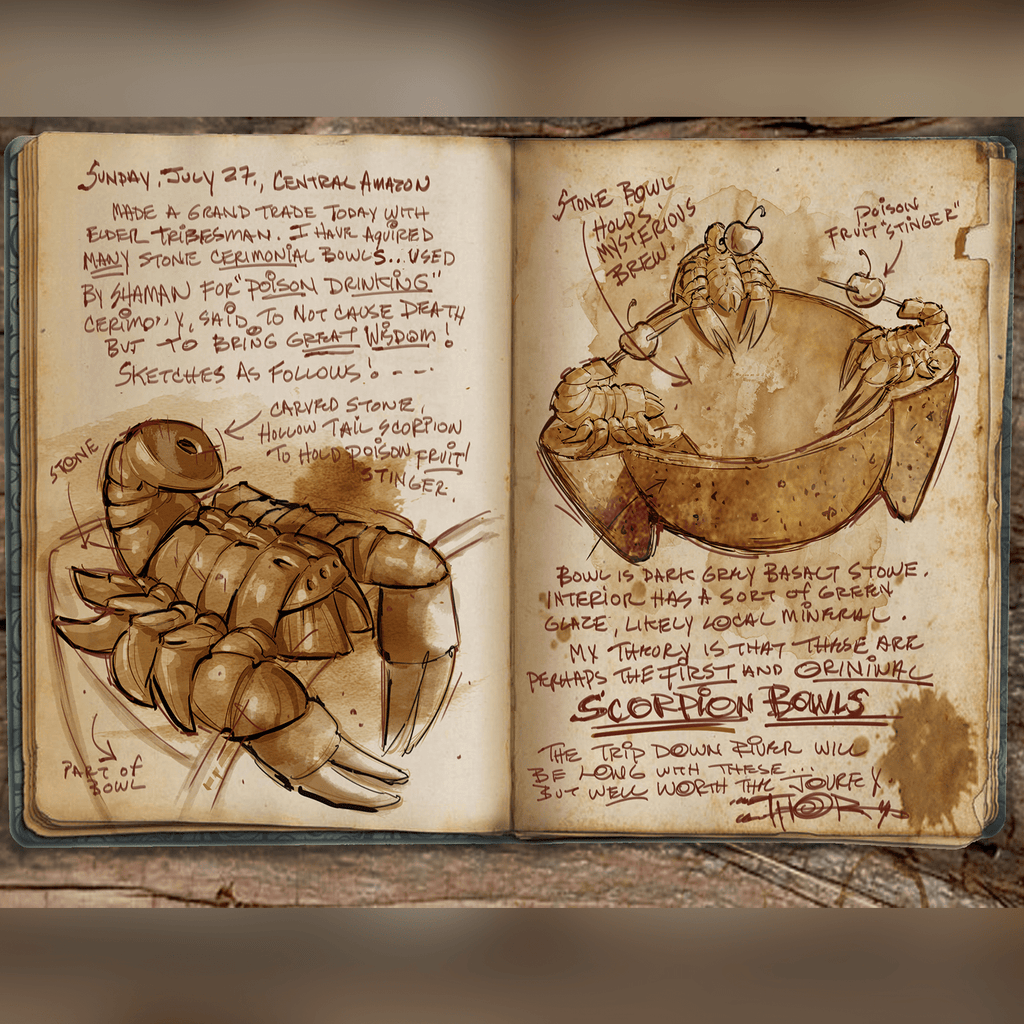 SUNDAY, JULY 27., CENTRAL AMAZON
MADE A GRAND TRADE TODAY WITH
ELDER TRIBESMAN. I HAVE AQUIRED
MANY STONE CERIMONIAL BOWLS... USED
BY SHAMAN FOR "POISON DRINKING"
CERIMO Y, SAID TO NOT CAUSE DEATH
BUT TO BRING GREAT WISDOM!
SKETCHES AS FOLLOWS! - - -
CARVED STONE,
HOLLOW TAIL SCORPION
TO HOLD POISON FRUIT
STINGER.
STONE
PART OF
BOWL
STONE BOWL
HOLDS
MYSTERIOUS
BREW.
POISON
FRUIT "STINGER"
BOWL IS DARK GREY BASALT STONE.
INTERIOR HAS A SORT OF GREEN
GLAZE, LIKELY LOCAL MINERAL.
MY THEORY IS THAT THESE ARE
PERHAPS THE FIRST AND ORININAL
SCORPION BOWLS
THE TRIP DOWN RIVER WILL
BE LONG WITH THESE...
BUT WELL WORTH THE JOUREY
THOR